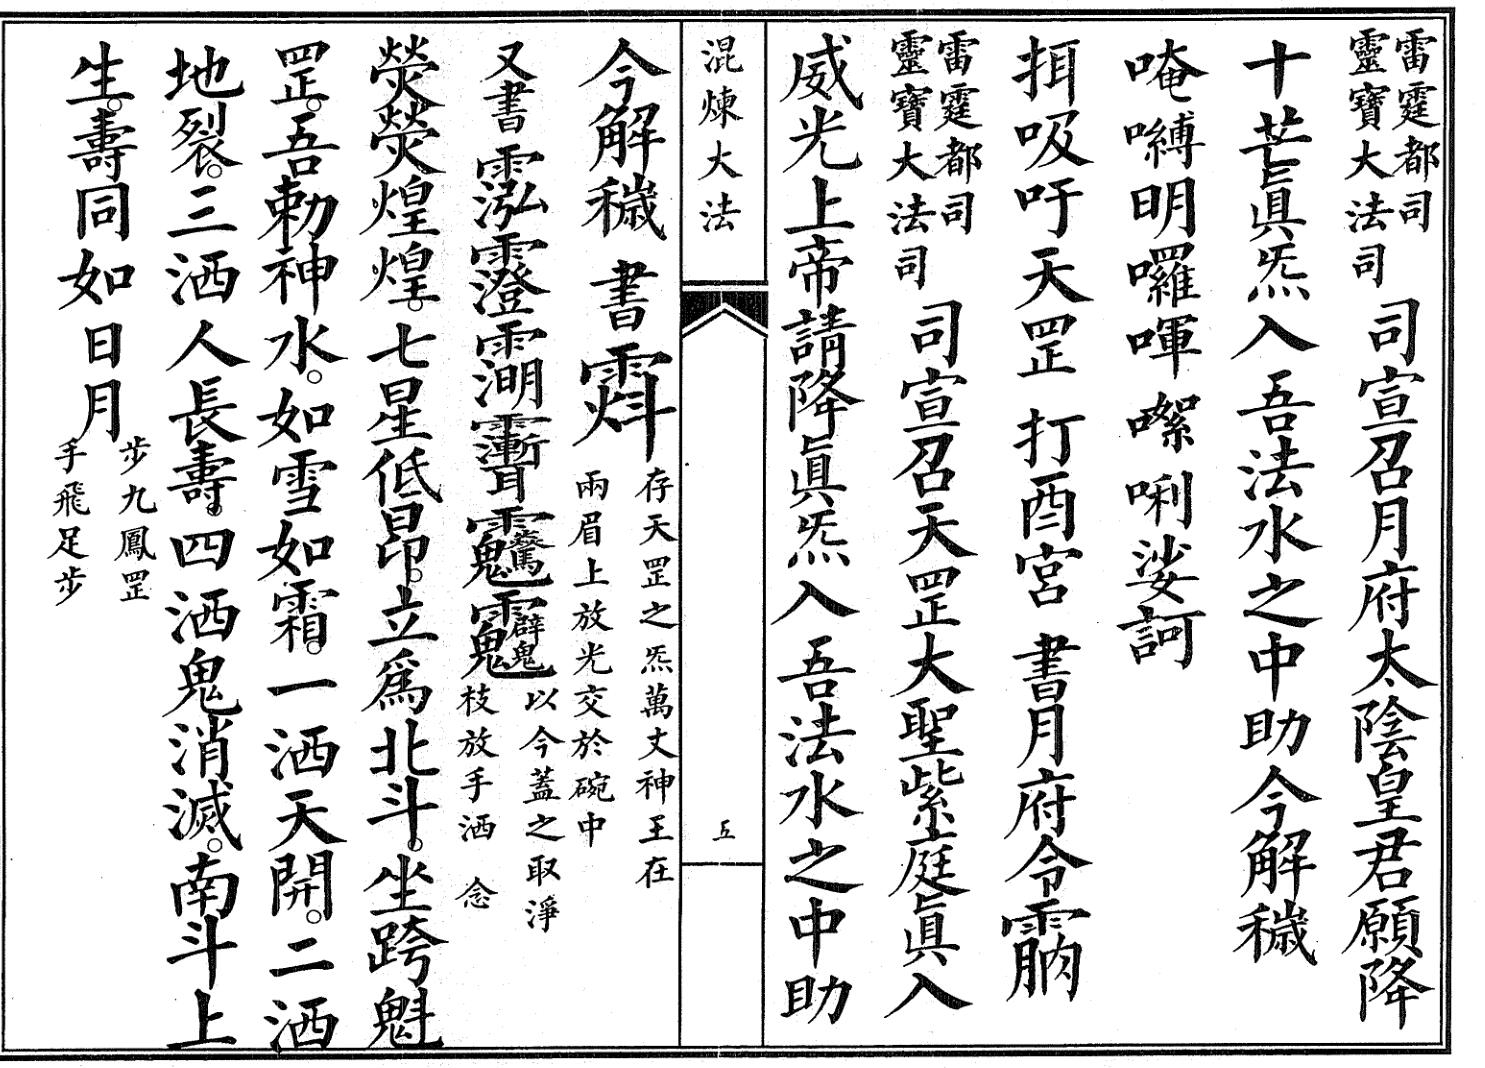 雷霆都司
靈寶大法司
司宣召月府太陰皇君願降
十芒眞炁入吾法水之中助今解穢
唵嚩明囉喗㗌唎娑訶
挕吸吁天罡打酉宮書月府令
雷霆都司
靈寶大法司
司宣召天罡大聖紫庭眞人
威光上帝請降眞炁入吾法水之中助
混煉大法
五
今解穢書
存天罡之炁萬丈神王在
兩眉上放光交於碗中
又書
以今蓋之取淨
枝放手洒念
熒熒煌煌。七星低昂。立爲北斗。坐跨魁
罡。吾勅神水。如雪如霜。一洒天開。二洒
地裂。三洒人長壽。四洒鬼消滅。南斗上
生。壽同如日月
步九鳳罡
手飛足步